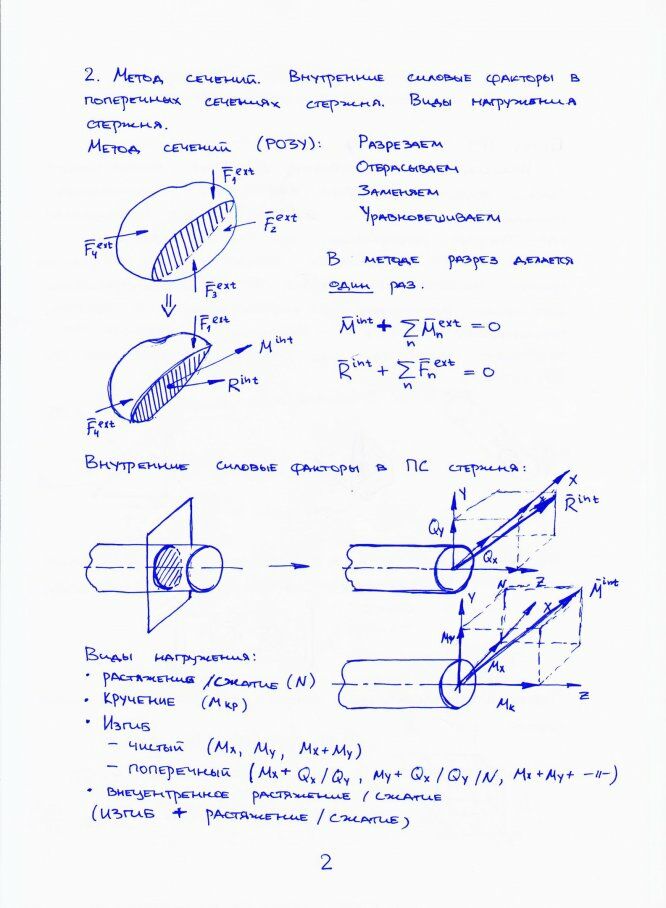 2. Метод сечений. Внутренние силовые факторы в
поперечных сечениях стержня. Виды нагружения
стержня.
Метод сечений (РОЗУ):
Разрезаем
Отбрасываем
Заменяем
Уравновешиваем
F̄₁ᵉˣᵗ
F̄₂ᵉˣᵗ
F̄₄ᵉˣᵗ
F̄₃ᵉˣᵗ
⇓
В методе разрез делается
один раз.
F̄₁ᵉˣᵗ
M̄ⁱⁿᵗ
R̄ⁱⁿᵗ
F̄₄ᵉˣᵗ
M̄ⁱⁿᵗ + ∑ₙ M̄ₙᵉˣᵗ = 0
R̄ⁱⁿᵗ + ∑ₙ F̄ₙᵉˣᵗ = 0
Внутренние силовые факторы в ПС стержня:
Y
X
R̄ⁱⁿᵗ
Qy
Qx
N
Z
Y
X
M̄ⁱⁿᵗ
My
Mx
Mк
Z
Виды нагружения:
• растяжение/сжатие (N)
• Кручение (Mкр)
• Изгиб
– чистый (Mx, My, Mx+My)
– поперечный (Mx+ Qx/Qy, My+ Qx/Qy/N, Mx+My+ –||–)
• внецентренное растяжение/сжатие
(изгиб + растяжение/сжатие)
2